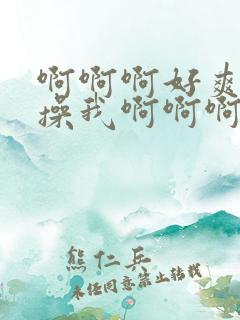 啊啊啊好爽
操我啊啊啊
熊仁兵
未经同意禁止转载